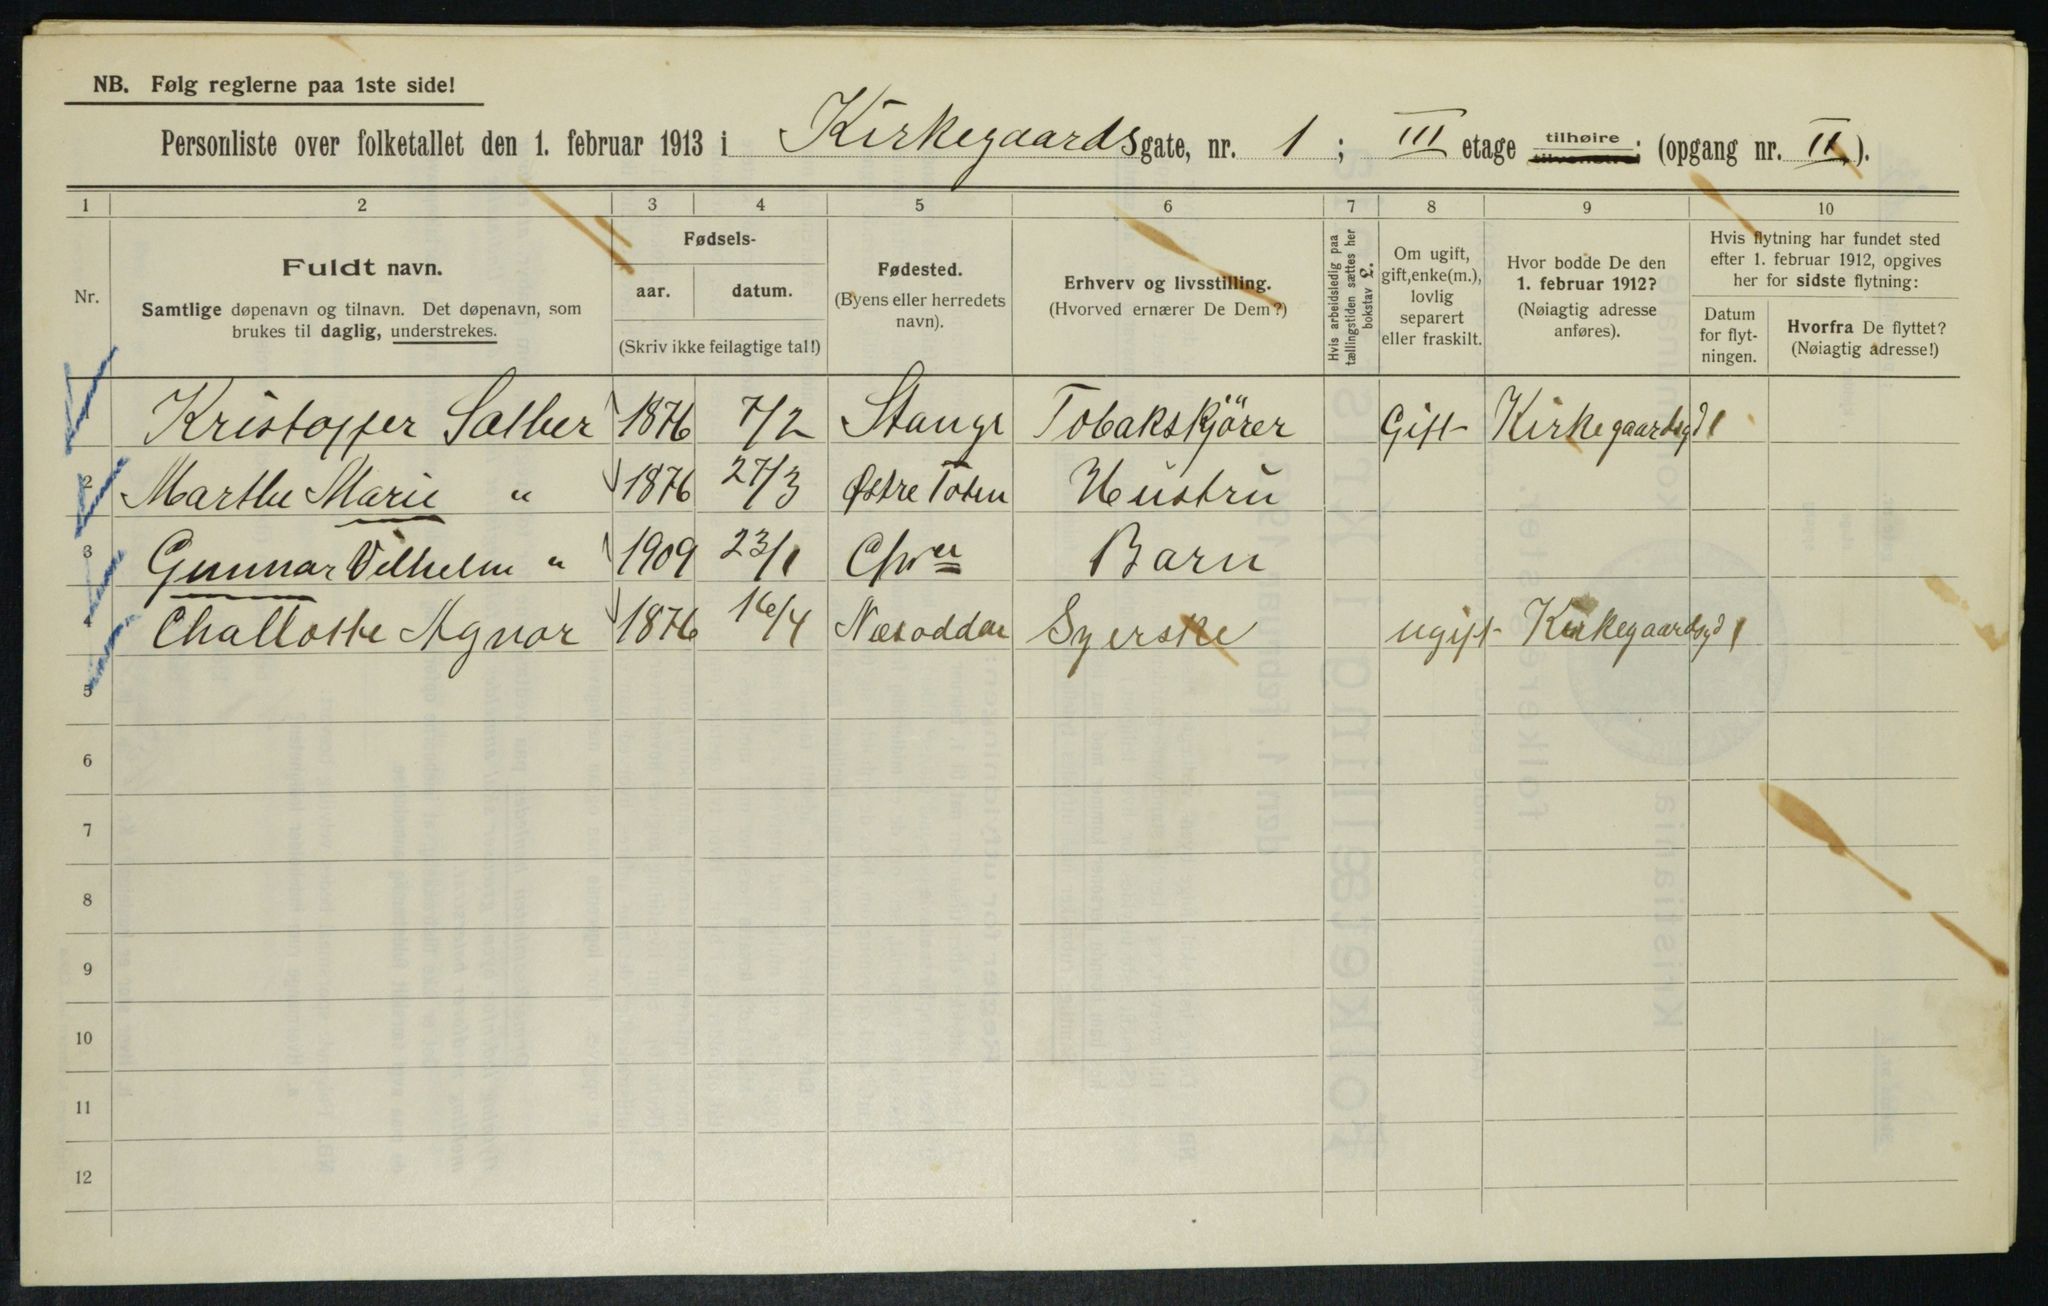 NB. Følg reglerne paa 1ste side!
Personliste over folketallet den 1. februar 1913 i Kirkegaardsgate, nr. 1; III etage tilhøire tilvenstre: (opgang nr. II).
1 2 3 4 5 6 7 8 9 10
Nr.
Fuldt navn.
Samtlige døpenavn og tilnavn. Det døpenavn, som
brukes til daglig, understrekes.
Fødsels-
aar. datum.
(Skriv ikke feilagtige tal!)
Fødested.
(Byens eller herredets
navn).
Erhverv og livsstilling.
(Hvorved ernærer De Dem?)
Hvis arbeidsledig paa
tællingstiden sættes her
bokstav L.
Om ugift,
gift, enke(m.),
lovlig
separert
eller fraskilt.
Hvor bodde De den
1. februar 1912?
(Nøiagtig adresse
anføres).
Hvis flytning har fundet sted
efter 1. februar 1912, opgives
her for sidste flytning:
Datum
for flyt-
ningen.
Hvorfra De flyttet?
(Nøiagtig adresse!)
Kristoffer Sælber 1876 7/2 Stange Tobakskjörer Gift Kirkegaardsgd 1
2 Marthe Marie " 1876 27/3 Østre Toten Hustru
3 Gunnar Vilhelm " 1909 23/1 Chra Barn
4 Challotte Agnor 1876 16/4 Næsodden Syerske ugift Kirkegaardsgd 1
5
6
7
8
9
10
11
12